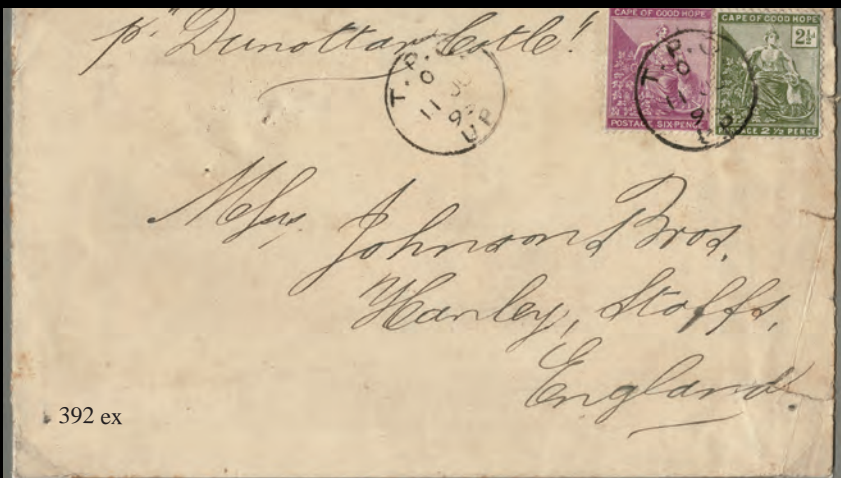 p. "Dunottar Castle"
CAPE OF GOOD HOPE
POSTAGE SIX PENCE
CAPE OF GOOD HOPE
2½
POSTAGE 2½ PENCE
T.P.O.
11 JU
UP
T.P.O.
11
Messrs. Johnson Bros,
Hanley, Staffs,
England.
392 ex